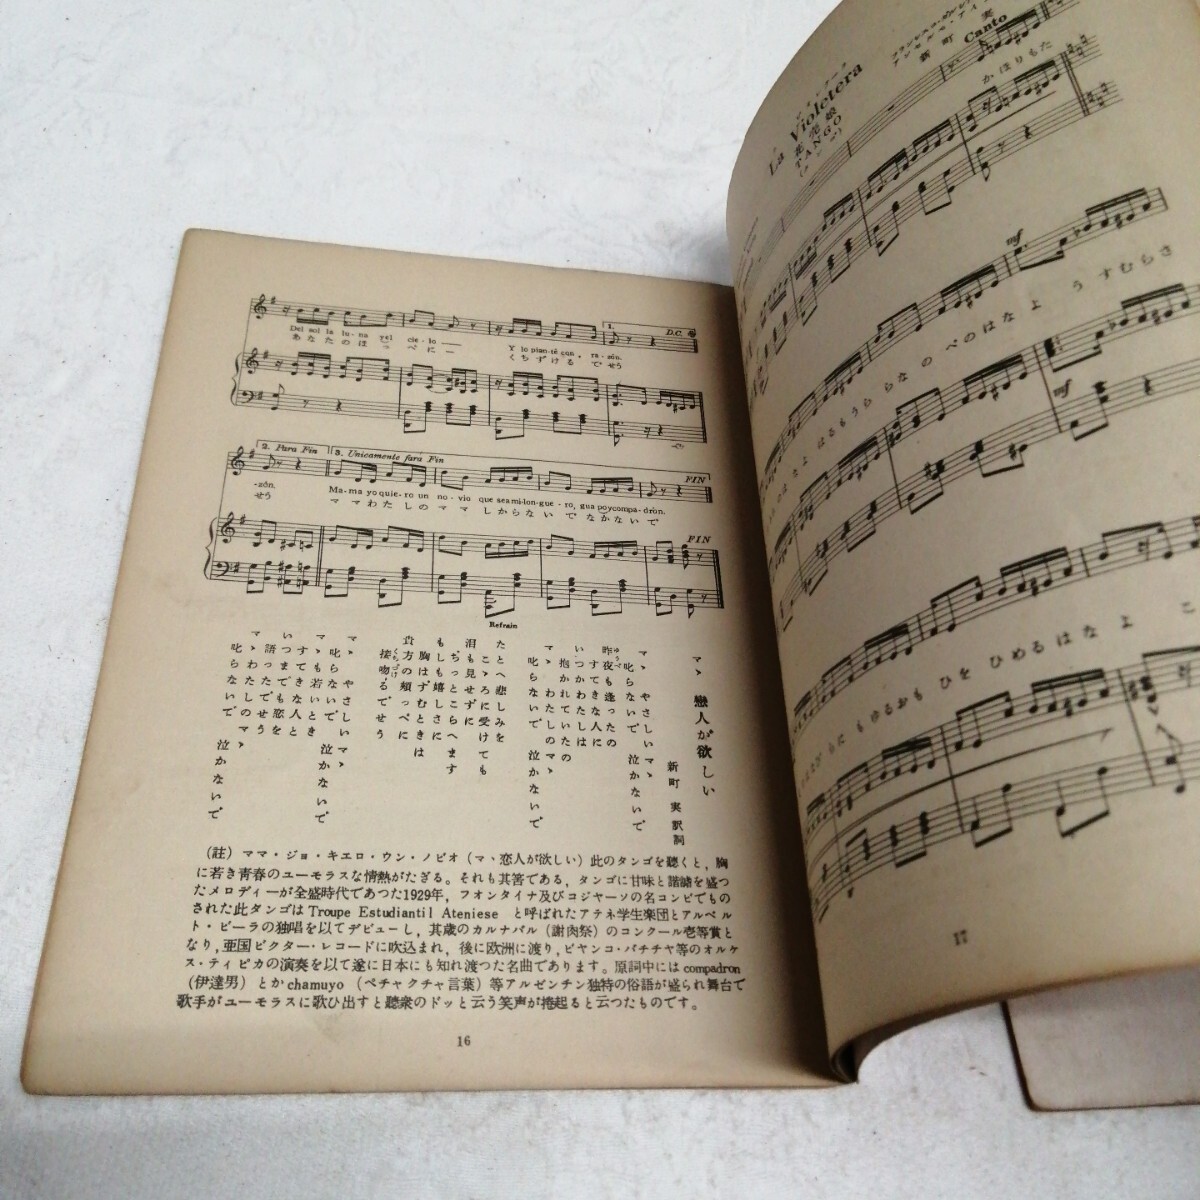 1.
D.C.
Del sol la lu-na yel cie-lo
Y lo pian-té con, ra-zón.
あなたのほっぺにー
くちずけるで せう
2. Para Fin
3. Unicamente fara Fin
FIN
-zón.
Ma-ma yo quie-ro un no-vio que sea mi-lon-gue-ro, gua poycompa-drón.
せう
ママわたしのママ しからないで なかないで
FIN
Refrain
マヽ 戀人が欲しい
新町 実 訳詞
マヽ やさしいマヽ
叱らないで 泣かないで
昨夜逢つたの
すてきな人に
いつかわたしは
抱かれていたの
マヽ わたしのマヽ
叱らないで 泣かないで
たとへ悲しみを
こゝろに受けても
泪も見せずに
ぢつとこらへます
もしも嬉しさに
胸はずむときは
貴方の頬つぺに
接吻るでせう
マヽ やさしいマヽ
叱らないで 泣かないで
マヽも若いとき
いつまでもないと
語つたでせう
マヽ わたしのマヽ
叱らないで 泣かないで
(註) ママ・ジョ・キエロ・ウン・ノビオ (マヽ恋人が欲しい) 此のタンゴを聴くと, 胸
に若き青春のユーモラスな情熱がたぎる。それも其筈である, タンゴに甘味と諧謔を盛つ
たメロディーが全盛時代であつた1929年, フオンタイナ及びコジヤーソの名コンビでもの
された此タンゴは Troupe Estudiantil Ateniese と呼ばれたアテネ学生楽団とアルベル
ト・ビーラの独唱を以てデビューし, 其歳のカルナバル (謝肉祭) のコンクール壱等賞と
なり, 亜国ビクター・レコードに吹込まれ, 後に欧洲に渡り, ビヤンコ・バチチヤ等のオルケ
ス・ティピカの演奏を以て遂に日本にも知れ渡つた名曲であります。原詞中には compadron
(伊達男) とか chamuyo (ペチャクチャ言葉) 等アルゼンチン独特の俗語が盛られ舞台で
歌手がユーモラスに歌ひ出すと聽衆のドッと云う笑声が捲起ると云つたものです。
16
La Violetera
花売娘
TANGO
(タンゴ)
新町 実
Canto
かほりもた
mf
うすむらさ
mf
ひを ひめるはなよ こ
17